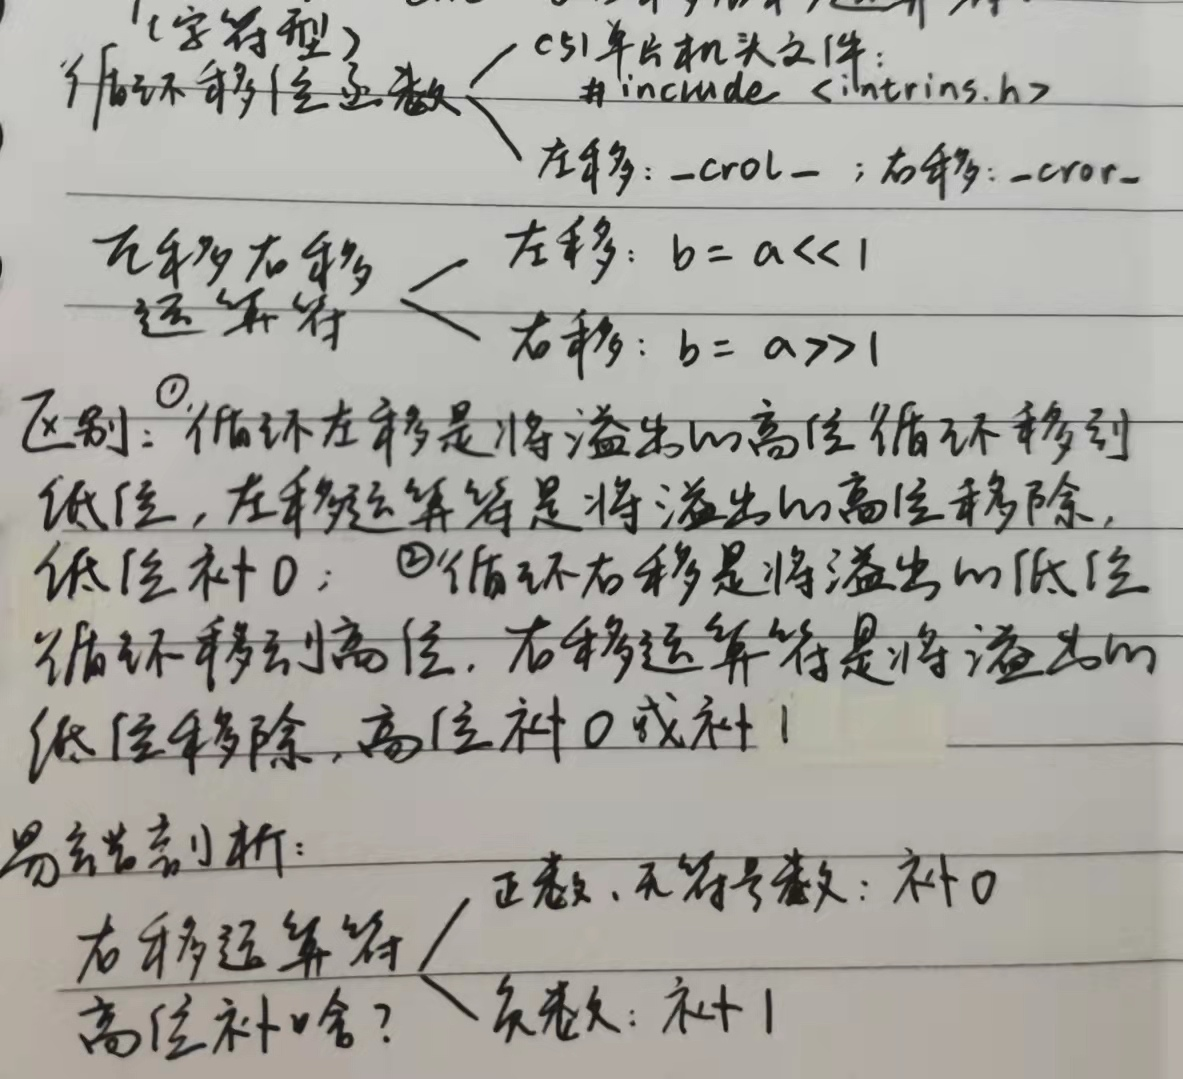 (字符型)
循环移位函数
C51单片机头文件:
#include <intrins.h>
左移: _crol_ ; 右移: _cror_
左移右移
运算符
左移: b = a<<1
右移: b = a>>1
区别: ①循环左移是将溢出的高位循环移到
低位, 左移运算符是将溢出的高位移除,
低位补0; ②循环右移是将溢出的低位
循环移到高位, 右移运算符是将溢出的
低位移除, 高位补0或补1
易错剖析:
右移运算符
高位补啥?
正数、无符号数: 补0
负数: 补1